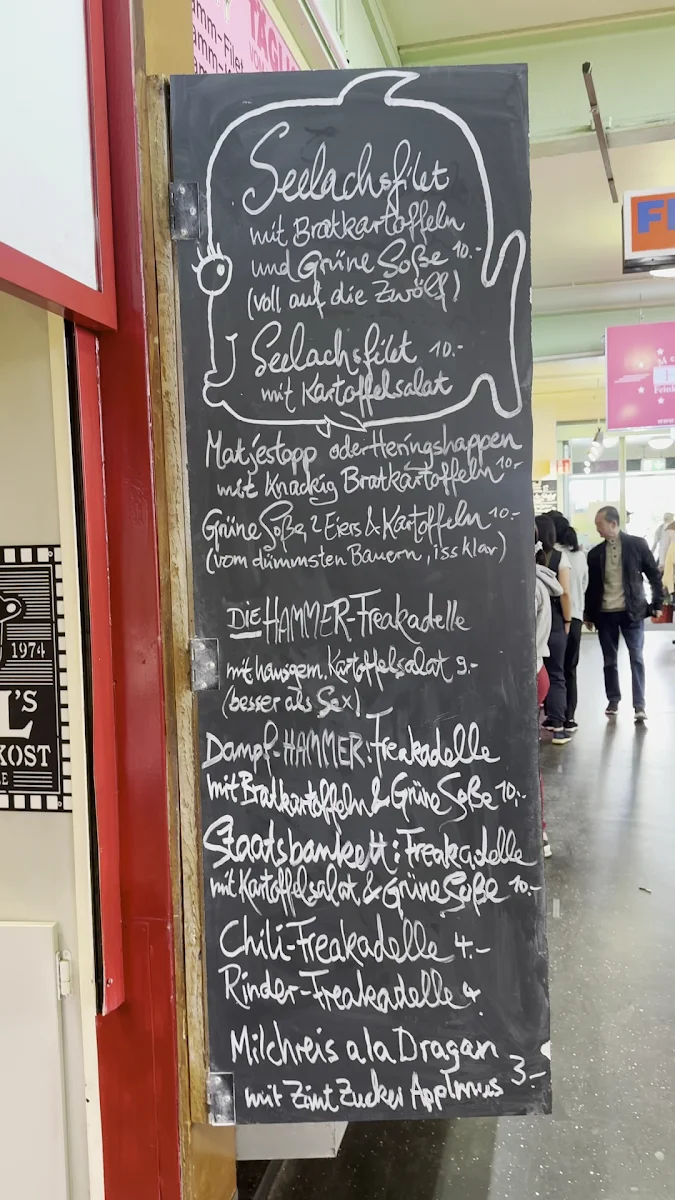 amm-Filet
TÄGLI
Seelachsfilet
mit Bratkartoffeln
und Grüne Soße 10.-
(voll auf die Zwölf)
Seelachsfilet 10.-
mit Kartoffelsalat
Matjestopp oder Heringshappen
mit Knackig Bratkartoffeln 10.-
Grüne Soße, 2 Eiers & Kartoffeln 10.-
(vom dümmsten Bauern, iss klar)
DIE HAMMER-Freakadelle
mit hausgem. Kartoffelsalat 9.-
(besser als Sex)
Dampf-HAMMER: Freakadelle
mit Bratkartoffeln & Grüne Soße 10.-
Staatsbankett: Freakadelle
mit Kartoffelsalat & Grüne Soße 10.-
Chili-Freakadelle 4.-
Rinder-Freakadelle 4.
Milchreis a la Dragan
mit Zimt Zucker Applmus 3.-
1974
L'S
KOST
LE
FE
Feink